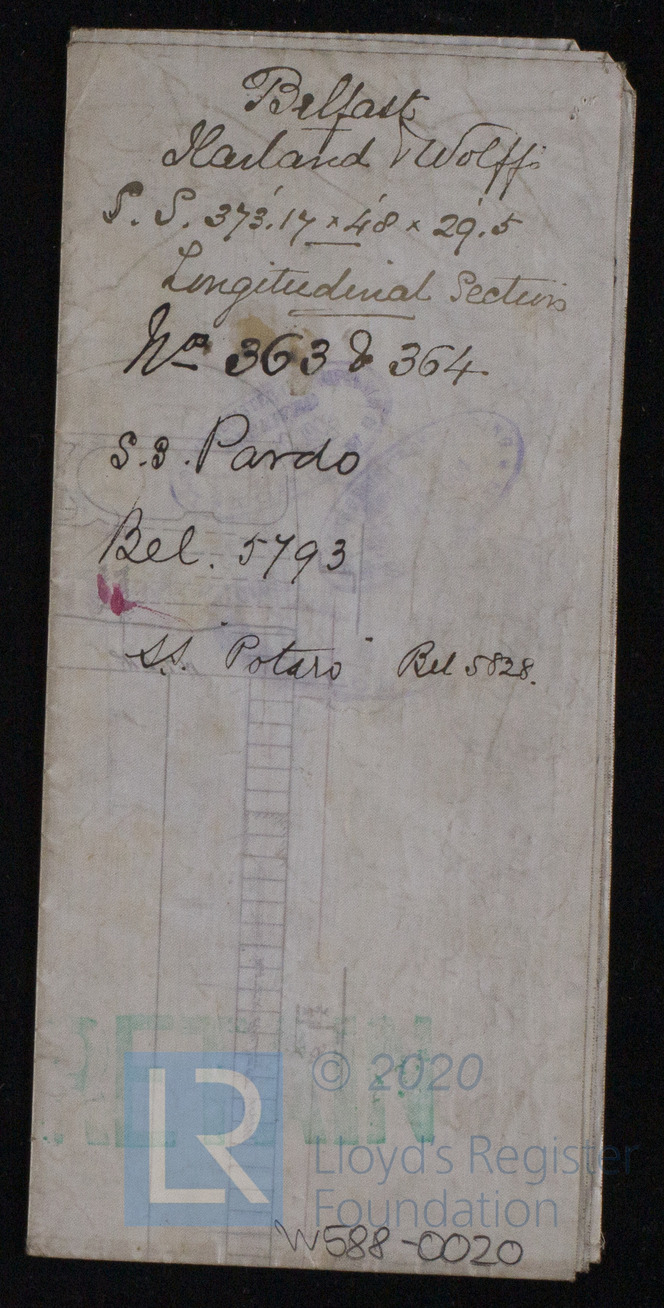 Belfast
Harland & Wolff's
S.S. 373.17 × 48 × 29.5
Longitudinal Section
Nos 363 & 364
S.S. Pardo
Bel. 5793
S.S. "Potaro" Bel 5828.
LR
© 2020
Lloyd's Register
Foundation
W588-0020